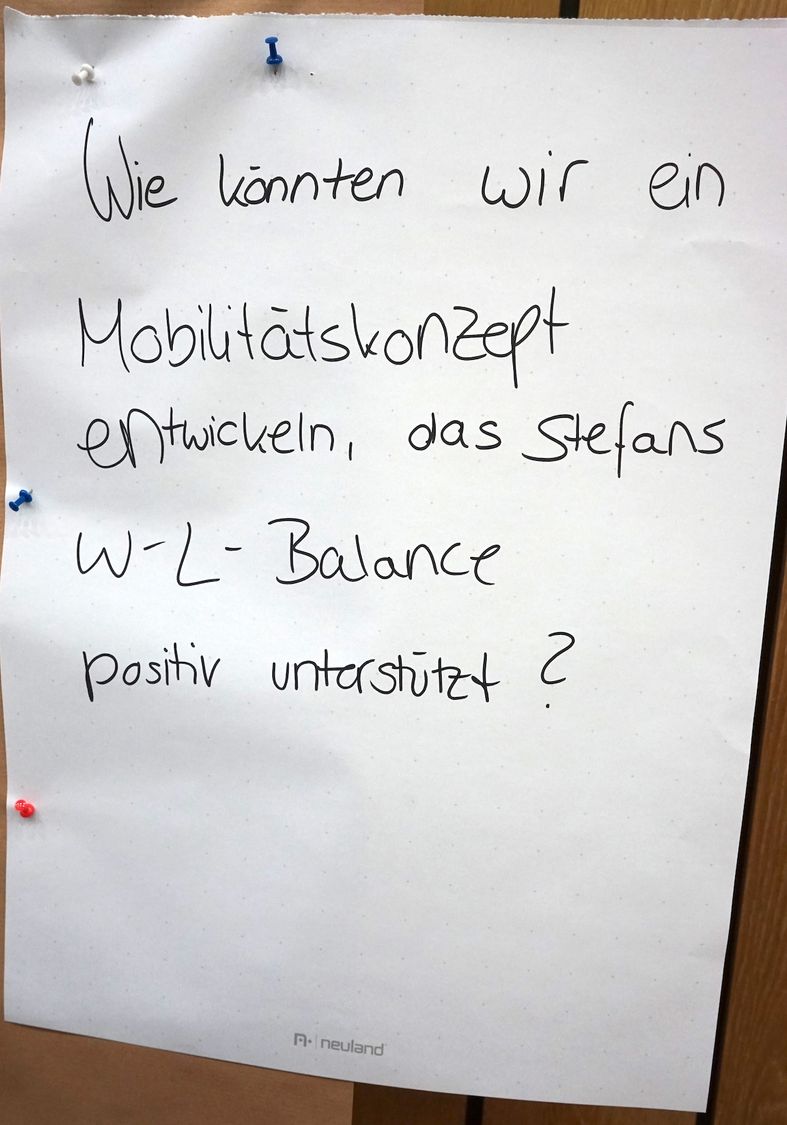 Wie könnten wir ein
Mobilitätskonzept
entwickeln, das Stefans
W-L-Balance
positiv unterstützt?
neuland